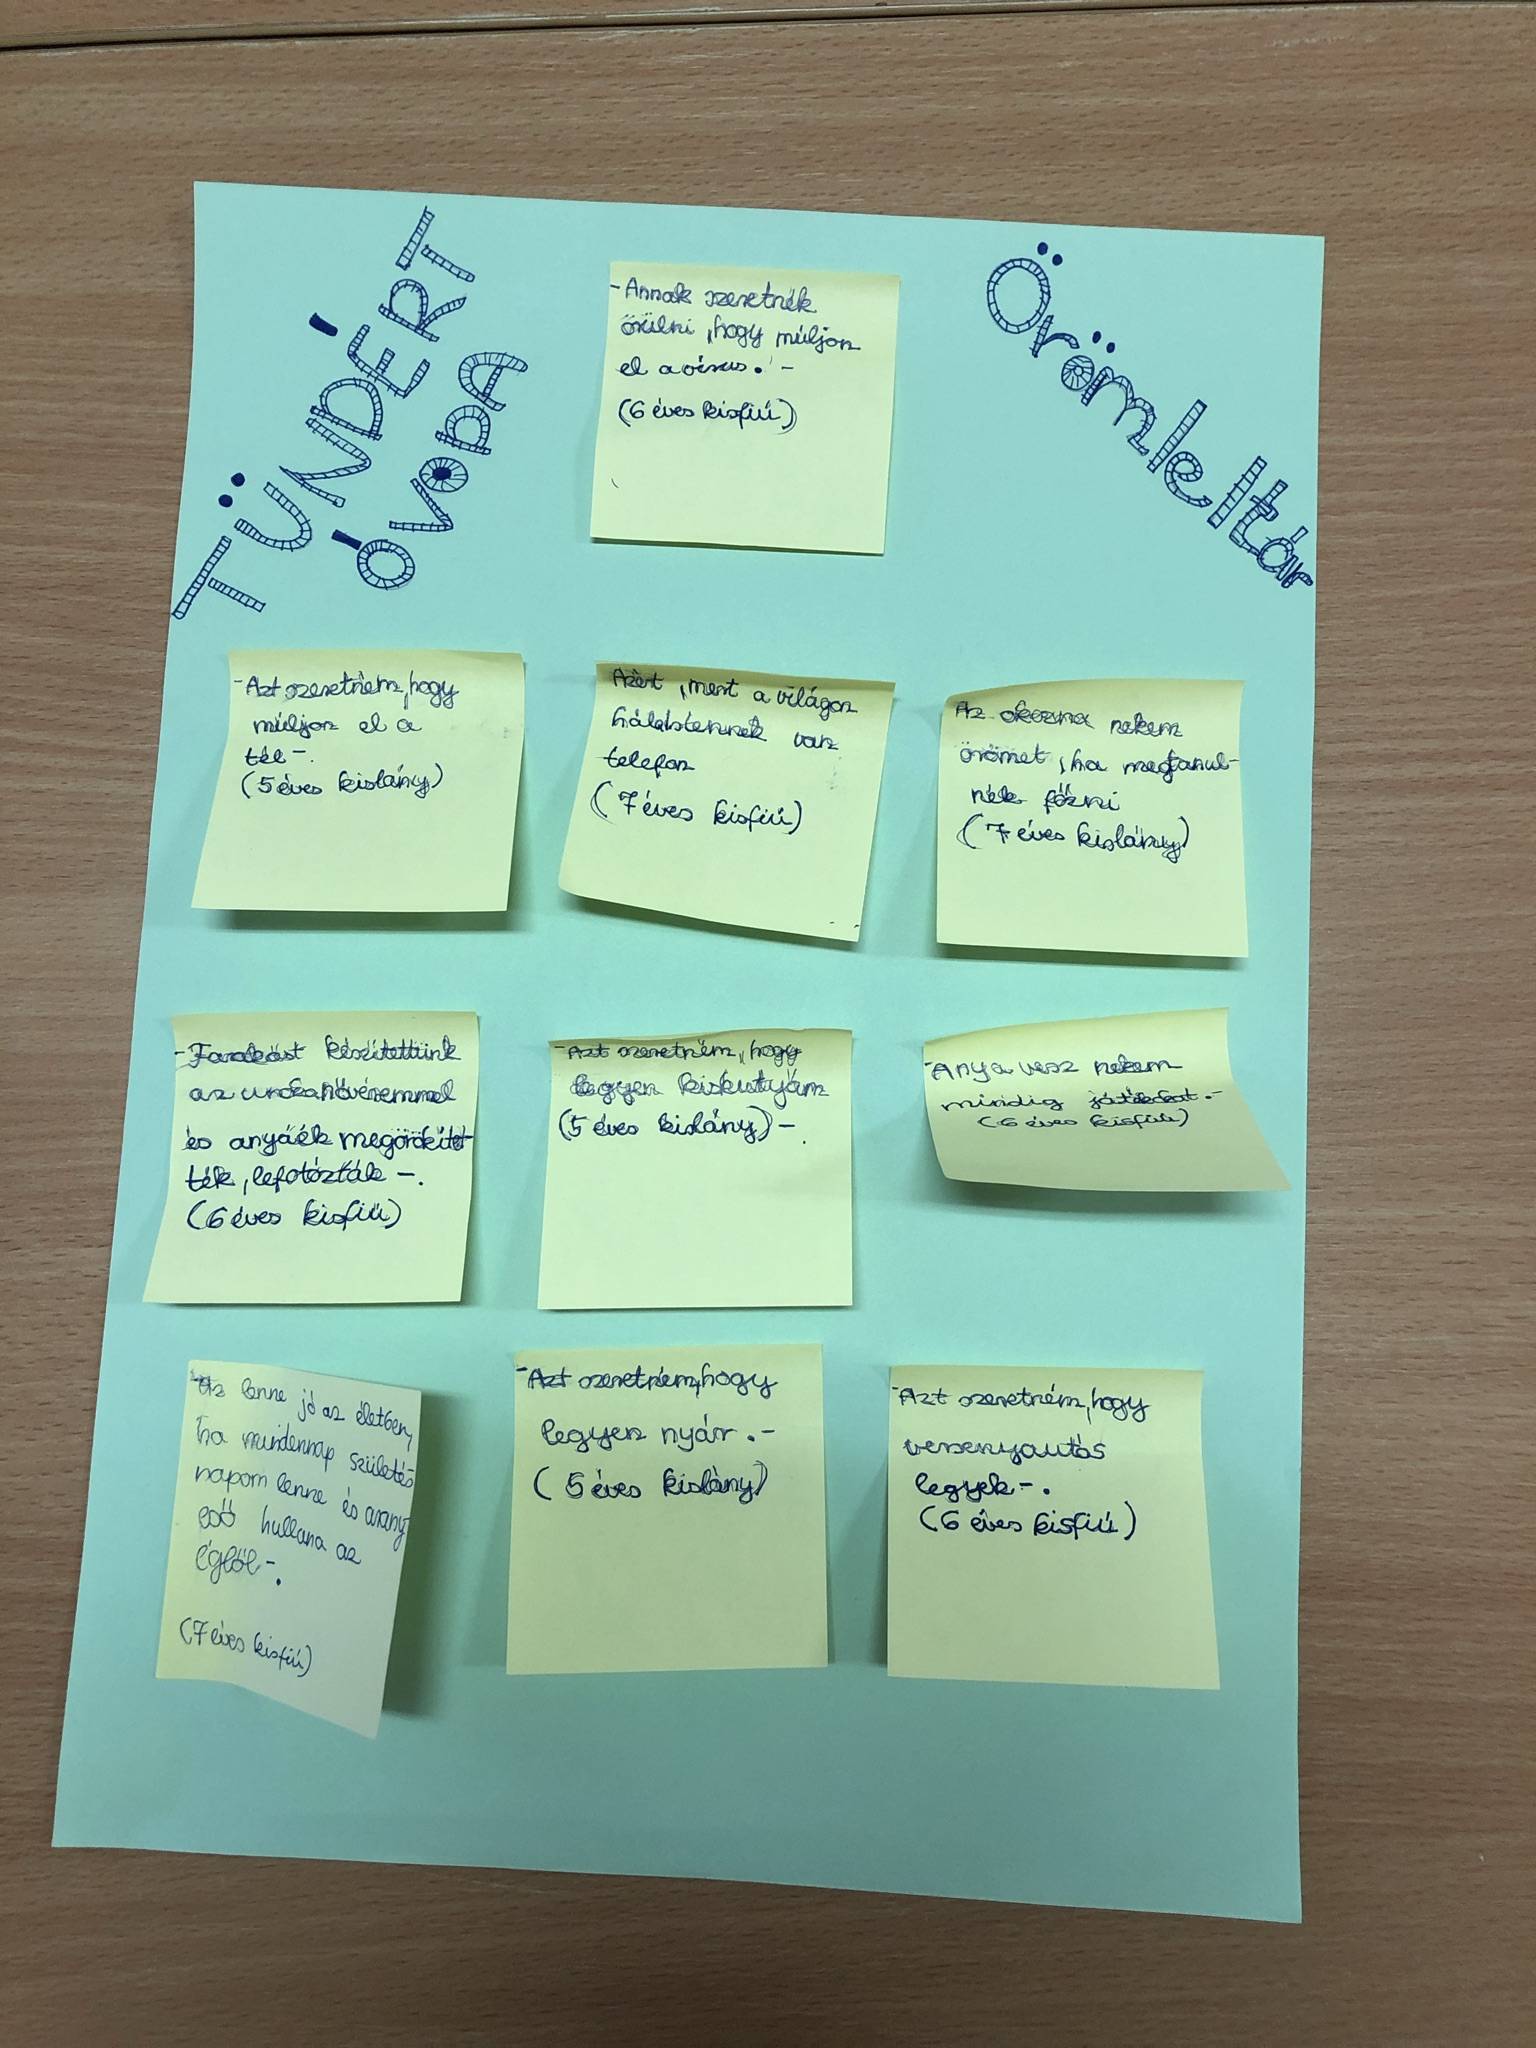 TÜNDÉRT
ÓVODA
Örömleltár
- Annak szeretnék
örülni, hogy múljon
el a vírus. -
(6 éves kisfiú)
- Azt szeretném, hogy
múljon el a
tél -
(5 éves kislány)
Azért, mert a világon
hálaistennek van
telefon
(7 éves kisfiú)
Az okozna nekem
örömet, ha megtanul-
nék főzni
(7 éves kislány)
- Farakást készítettünk
az unokanővéremmel
és anyáék megörökítet-
ték, lefotózták -.
(6 éves kisfiú)
- Azt szeretném, hogy
legyen kiskutyám
(5 éves kislány) -
- Anya vesz nekem
mindig játékokat. -
(6 éves kisfiú)
- Az lenne jó az életben,
ha mindennap születés-
napom lenne és arany-
eső hullana az
égből -.
(7 éves kisfiú)
- Azt szeretném, hogy
legyen nyár. -
(5 éves kislány)
- Azt szeretném, hogy
versenyautós
legyek -.
(6 éves kisfiú)